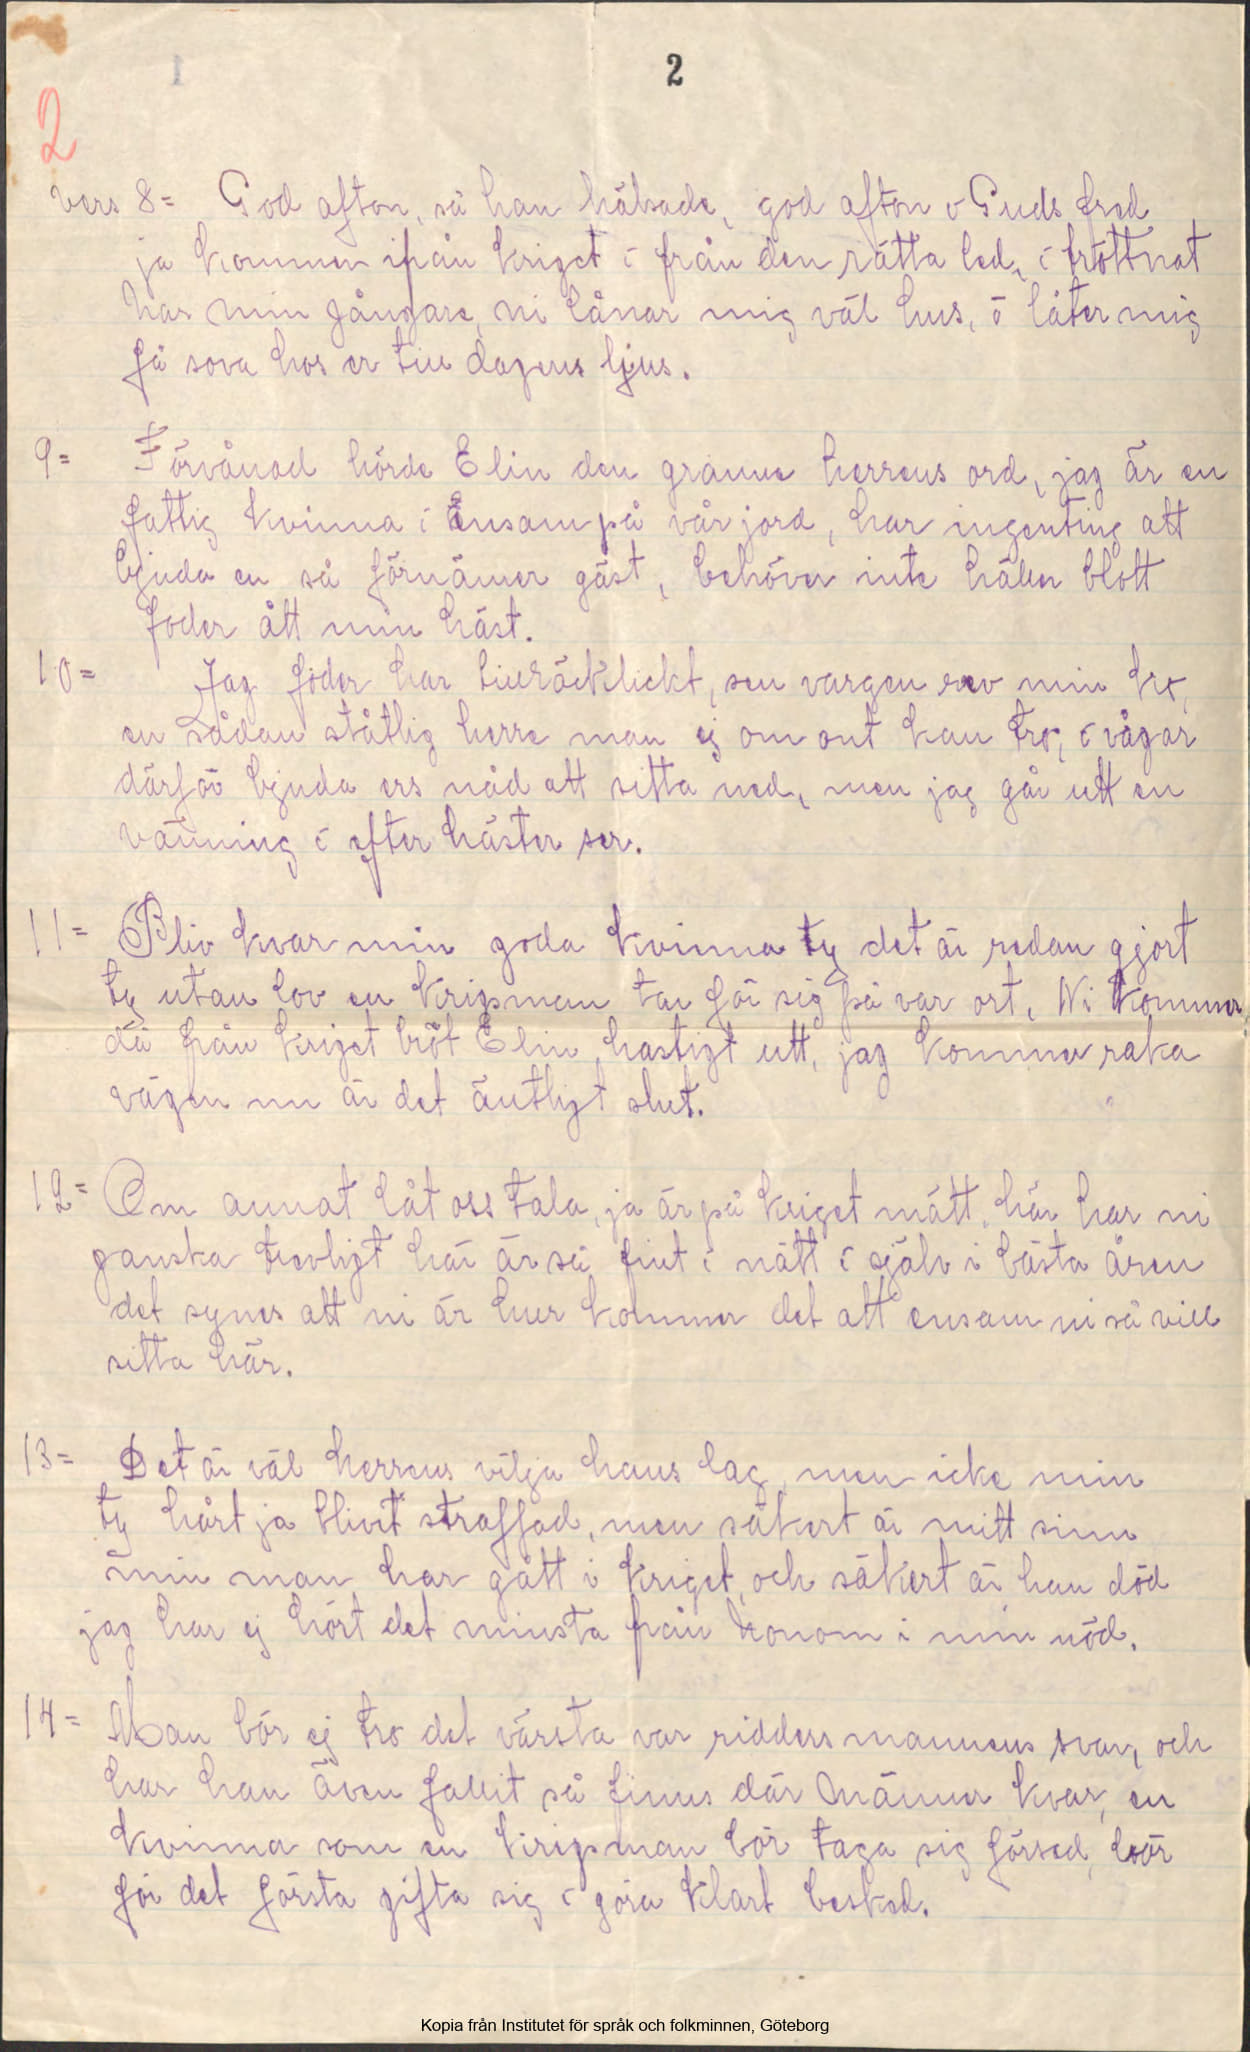 1
2
2
vers 8= God afton, så han hälsade, god afton o Guds fred
ja kommer ifrån kriget i från den rätta led, i tröttnat
har min gångare, ni lånar mig väl hus, o låter mig
få sova hos er till dagens ljus.
9= Förvånad hörde Elin den granne herrens ord, jag är en
fattig kvinna i Ensam på vår jord, har ingenting att
bjuda en så förnämer gäst, behöver inte häller blott
foder ått min häst.
10= Jag foder har tillräcklickt, sen vargen rev min ko,
en sådan ståtlig herre man ej om ont kan tro, i vågar
därför bjuda ers nåd att sitta ned, men jag går utt en
vänning i efter hästen ser.
11= Bliv kvar min goda kvinna ty det är redan gjort
ty utan lov en krigsman tar för sig på var ort, Ni kommer
då från kriget bröt Elin hastigt utt, jag kommer raka
vägen nu är det äntligt slut.
12= Om annat låt oss tala, ja är på kriget mätt, här har ni
ganska trevligt här är så fint i nätt i själv i bästa åren
det synes att ni är hur kommer det att ensam ni så vill
sitta här.
13= Det är väl herrens vilja hans lag, men icke min
ty hårt ja blivit straffad, men säkert är mitt sinn
min man har gått i kriget, och säkert är han död
jag har ej hört det minsta från honom i min nöd.
14= Man bör ej tro det värsta var riddersmannens svar, och
har han även fallit så finns där Männer kvar, en
kvinna som en krigsman bör taga sig försed, bör
för det första gifta sig i göra klart besked.
Kopia från Institutet för språk och folkminnen, Göteborg